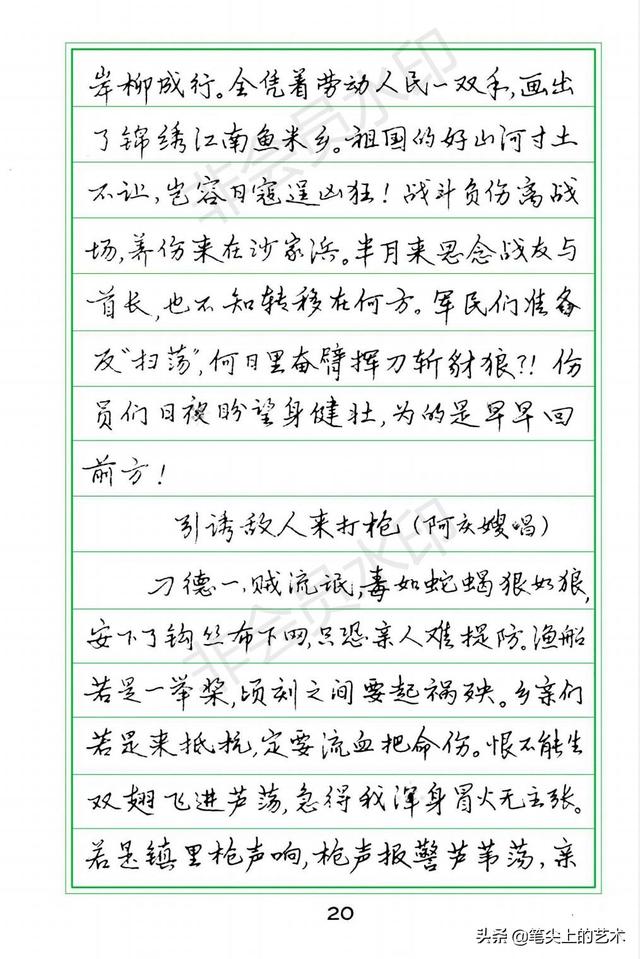 岸柳成行。全凭着劳动人民一双手,画出
了锦绣江南鱼米乡。祖国的好山河寸土
不让,岂容日寇逞凶狂!战斗负伤离战
场,养伤来在沙家浜。半月来思念战友与
首长,也不知转移在何方。军民们准备
反“扫荡”,何日里奋臂挥刀斩豺狼?!伤
员们日夜盼望身健壮,为的是早早回
前方!
引诱敌人来打枪(阿庆嫂唱)
刁德一,贼流氓,毒如蛇蝎狠如狼,
安下了钩丝布下网,只恐亲人难提防。渔船
若是一举桨,顷刻之间要起祸殃。乡亲们
若是来抵抗,定要流血把命伤。恨不能生
双翅飞进芦荡,急得我浑身冒火无主张。
若是镇里枪声响,枪声报警芦苇荡,亲
20
头条@笔尖上的艺术
非会员水印
非会员水印